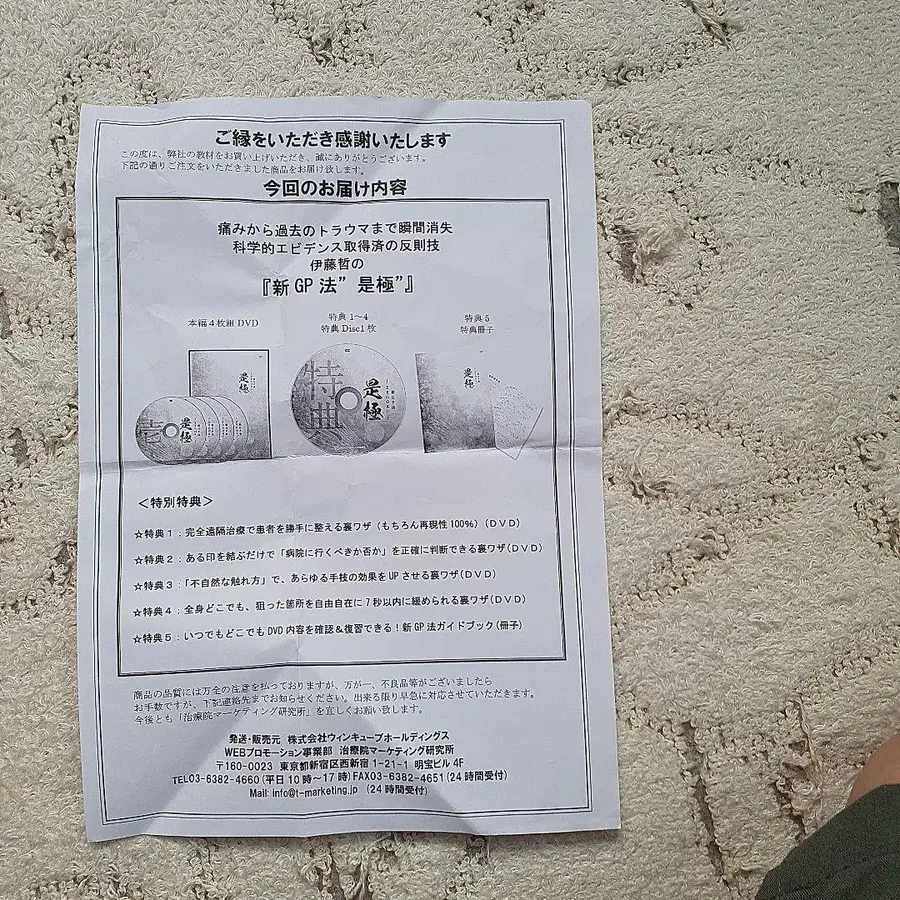 ご縁をいただき感謝いたします
この度は、弊社の教材をお買い上げいただき、誠にありがとうございます。
下記の通りご注文をいただきました商品をお届け致します。
今回のお届け内容
痛みから過去のトラウマまで瞬間消失
科学的エビデンス取得済の反則技
伊藤哲の
『新GP法”是極”』
本編4枚組DVD
特典1～4
特典Disc1枚
特典5
特典冊子
是極
壱
是極
特典
是極
是極
＜特別特典＞
☆特典1：完全遠隔治療で患者を勝手に整える裏ワザ（もちろん再現性100%）（DVD）
☆特典2：ある印を結ぶだけで「病院に行くべきか否か」を正確に判断できる裏ワザ(DVD)
☆特典3：「不自然な触れ方」で、あらゆる手技の効果をUPさせる裏ワザ(DVD)
☆特典4：全身どこでも、狙った箇所を自由自在に7秒以内に緩められる裏ワザ(DVD)
☆特典5：いつでもどこでもDVD内容を確認＆復習できる！新GP法ガイドブック(冊子)
商品の品質には万全の注意を払っておりますが、万が一、不良品等がございましたら
お手数ですが、下記連絡先までお知らせください。出来る限り早急に対応させていただきます。
今後とも「治療院マーケティング研究所」を宜しくお願い致します。
発送・販売元 株式会社ウィンキューブホールディングス
WEBプロモーション事業部 治療院マーケティング研究所
〒160-0023 東京都新宿区西新宿1-21-1 明宝ビル4F
TEL03-6382-4660(平日10時～17時)FAX03-6382-4651(24時間受付)
Mail: info@t-marketing.jp (24時間受付)